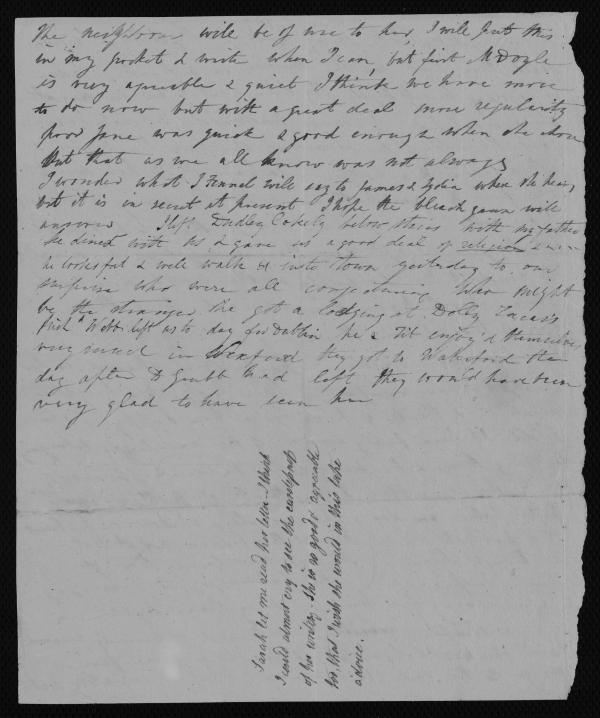 The neighbours will be of use to her, I will put this
in my pocket & write when I can, but first M Doyle
is very agreeable & quiet I think we have more
to do now but with a great deal more regularity
poor Jane was quick & good enough when she chose
But that as we all know was not always
I wonder what J Fennel will say to James & Lydia when she hears
but it is in secret at present I hope the black gown will
answer I left Dudley below stairs with my father
he dined with us & gave us a good deal of religion
he looks fat & well walk'd into Town yesterday to our
surprise who were all conjecturing who might
be the stranger he got a lodging at Dolly
Webb left us to day for Dublin he & Tit enjoy'd themselves
very much in Wexford they got to Waterford the
day after D Grubb had left they would have been
very glad to have seen her
Sarah let me read her letter - I think
I could almost cry to see the carelessness
of her writing. She is so good & agreeable
too, that I wish she would in this take
advice.